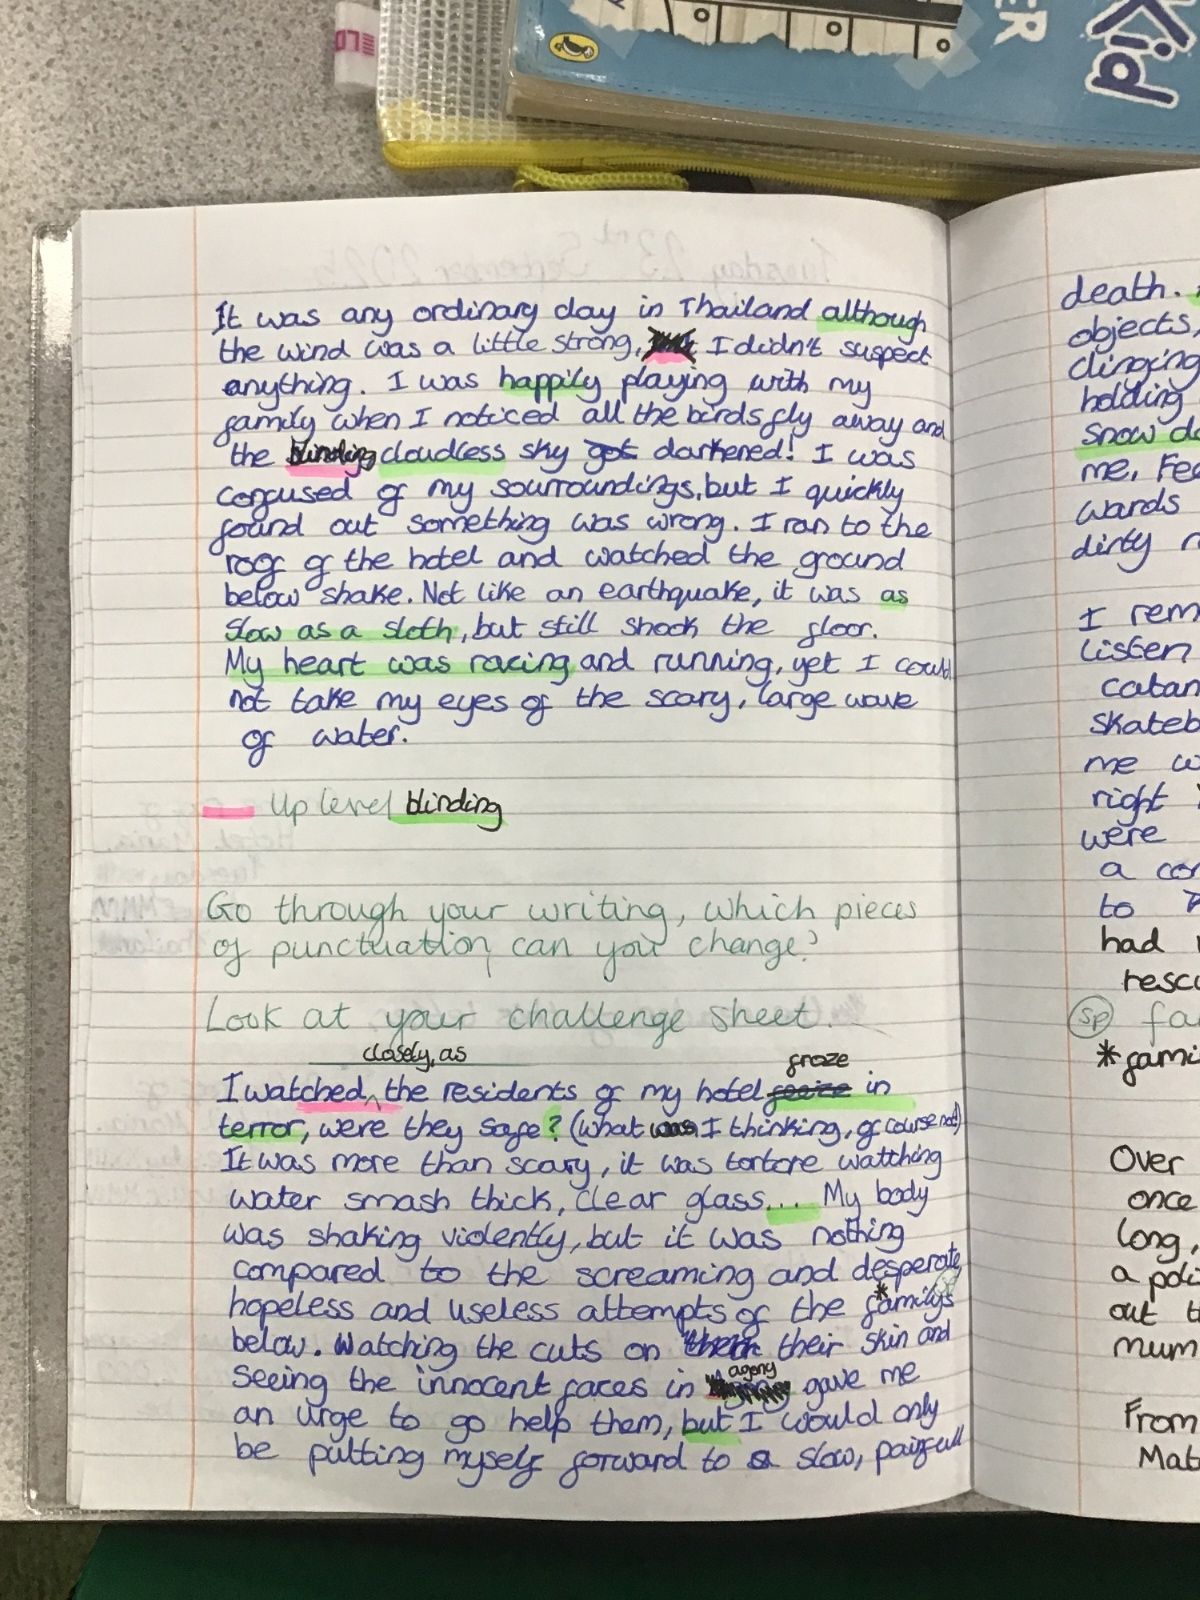 ER
Kid
It was any ordinary day in Thailand although
the wind was a little strong, I didn't suspect
anything. I was happily playing with my
family when I noticed all the birds fly away and
the blinding cloudless sky got darkened! I was
confused of my sourroundings, but I quickly
found out something was wrong. I ran to the
roof of the hotel and watched the ground
below shake. Not like an earthquake, it was as
slow as a sloth, but still shook the floor.
My heart was racing and running, yet I could
not take my eyes of the scary, large wave
of water.
Up level blinding
Go through your writing, which pieces
of punctuation can you change?
Look at your challenge sheet.
closely, as froze
I watched the residents of my hotel in
terror, were they safe? (what was I thinking, of course not)
It was more than scary, it was tortore watching
water smash thick, clear glass... My body
was shaking violently, but it was nothing
compared to the screaming and desperate,
hopeless and useless attempts of the *familys
below. Watching the cuts on their their skin and
agony
seeing the innocent faces in gave me
an urge to go help them, but I would only
be putting myself forward to a slow, painfull
death.
objects,
clinging
holding
snow
me. 
wards
dirty
I
listen
me
right
were
a
to
had
sp
*
Over
once
long,
a
out
mum
From